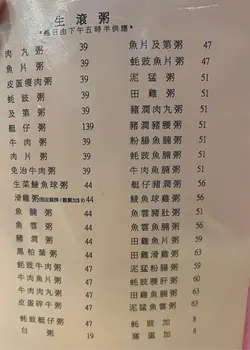 生滾粥
*每日由下午五時半供應*
肉丸粥 39
魚片粥 39
皮蛋瘦肉粥 39
蚝豉粥 39
及第粥 39
艇仔粥 139
牛肉粥 39
肉片粥 39
免治牛肉粥 39
生菜鯪魚球粥 44
滑雞粥 44
魚腩粥 44
魚雲粥 44
豬潤粥 44
黑柏葉粥 44
蚝豉牛肉粥 47
牛肉魚片粥 47
牛肉肉丸粥 47
皮蛋碎牛粥 47
蚝豉艇仔粥 47
白粥 19
魚片及第粥 47
蚝豉魚片粥 47
泥鯭粥 51
田雞粥 51
豬潤肉片粥 51
豬潤豬腰粥 51
粉腸魚腩粥 51
蚝豉魚腩粥 51
牛肉魚腩粥 51
艇仔豬潤粥 56
鯪魚球雞粥 56
魚雲豬肚粥 56
田雞魚片粥 59
泥鯭粉腸粥 59
蚝豉腰肝粥 60
田雞魚腩粥 60
泥鯭魚雲粥 63
蚝豉加 8
豬蛋加 8